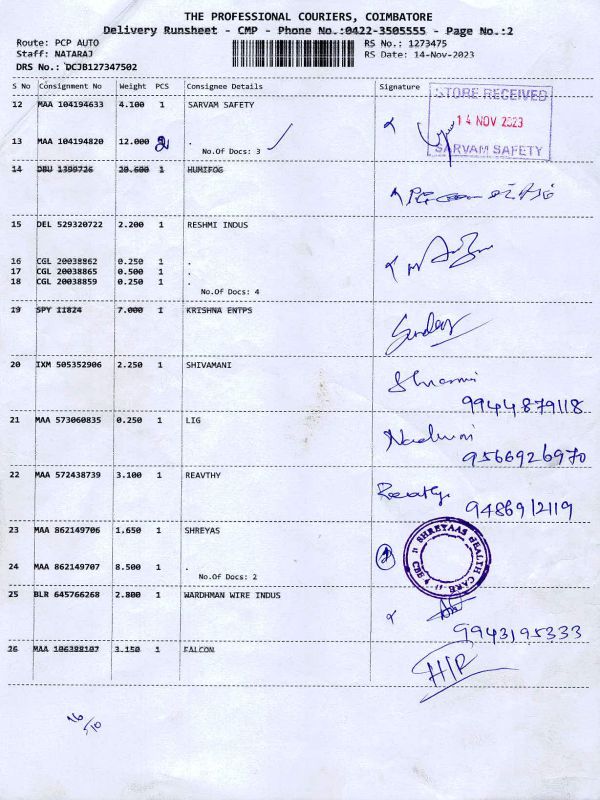 THE PROFESSIONAL COURIERS, COIMBATORE
Delivery Runsheet - CMP - Phone No.:0422-3505555 - Page No.:2
Route: PCP AUTO RS No.: 1273475
Staff: NATARAJ RS Date: 14-Nov-2023
DRS No.: DCJB127347502
S No Consignment No Weight PCS Consignee Details Signature
12 MAA 104194633 4.100 1 SARVAM SAFETY
STORE RECEIVED
14 NOV 2023
SARVAM SAFETY
13 MAA 104194820 12.000 2 .
No.Of Docs: 3
14 DBU 1399726 20.600 1 HUMIFOG
15 DEL 529320722 2.200 1 RESHMI INDUS
16 CGL 20038862 0.250 1 .
17 CGL 20038865 0.500 1 .
18 CGL 20038859 0.250 1 .
No.Of Docs: 4
19 SPY 11824 7.000 1 KRISHNA ENTPS
20 IXM 505352906 2.250 1 SHIVAMANI
9944879118
21 MAA 573060835 0.250 1 LIG
9566926970
22 MAA 572438739 3.100 1 REAVTHY
Reavathy
9486912119
23 MAA 862149706 1.650 1 SHREYAS
SHREYAAS HEALTH CARE
CBE 4
24 MAA 862149707 8.500 1 .
No.Of Docs: 2
25 BLR 645766268 2.800 1 WARDHMAN WIRE INDUS
9943195333
26 MAA 106388107 3.150 1 FALCON
16/10